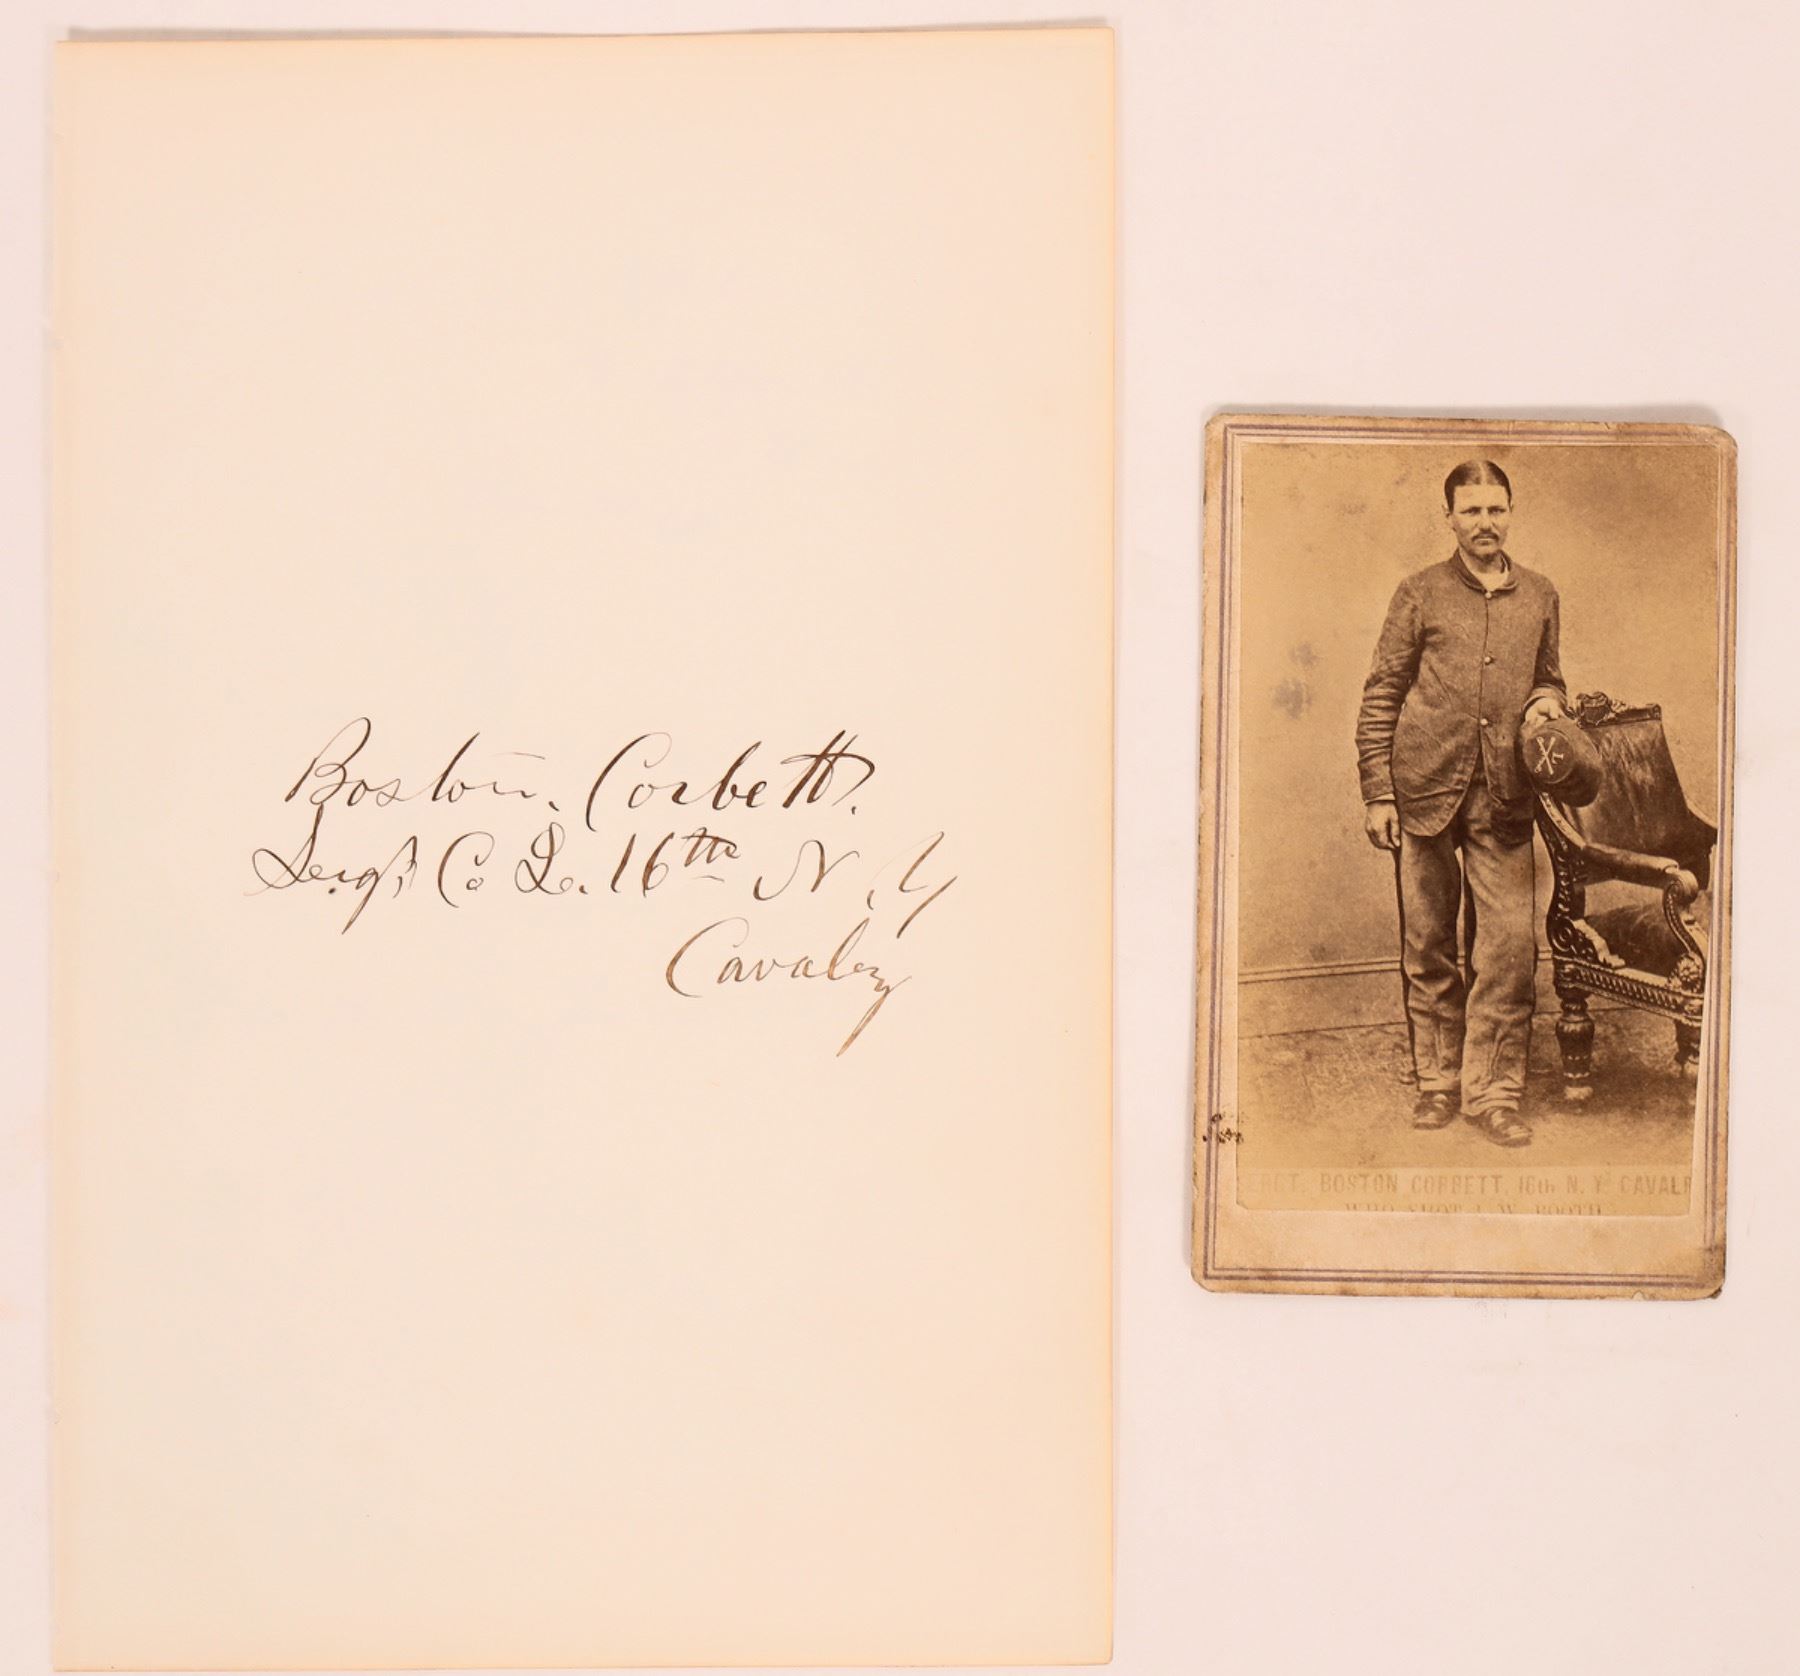 Boston. Corbett.
Sergt. Co L. 16th N.Y
Cavalry
SERGT. BOSTON CORBETT, 16th N. Y. CAVALR
WHO SHOT J. W. BOOTH